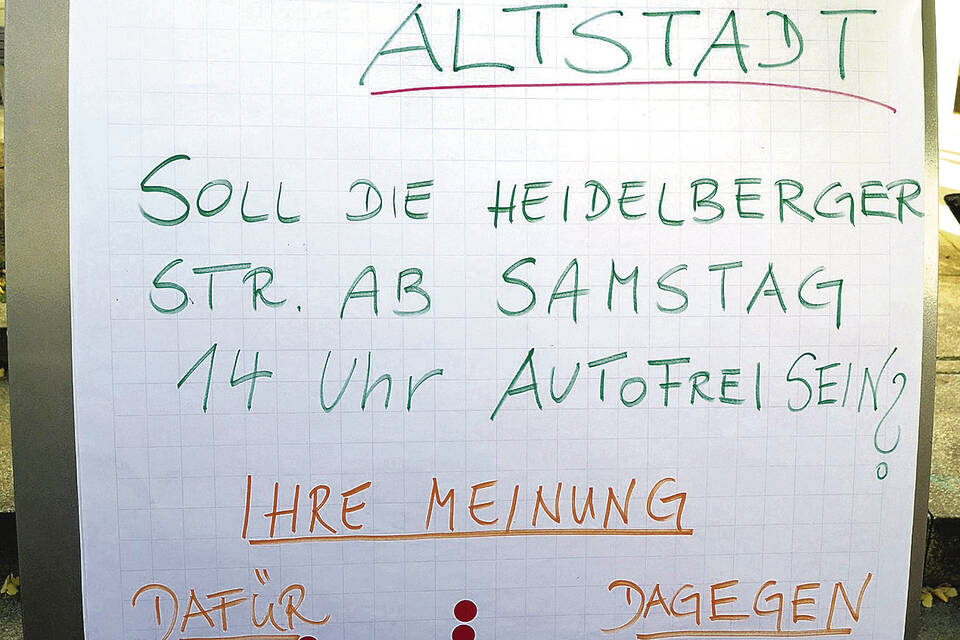 ALTSTADT
SOLL DIE HEIDELBERGER
STR. AB SAMSTAG
14 Uhr AUTOFREI SEIN?
IHRE MEINUNG
DAFÜR DAGEGEN